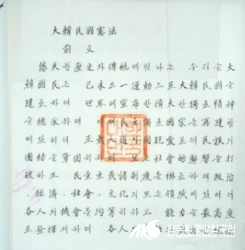 大韓民國憲法
前文
悠久한歷史와傳統에빛나는우리들大
韓國民은己未三一運動으로大韓民國을
建立하여世界에宣布한偉大한獨立精神
을繼承하여이제民主獨立國家를再建함에
있어서正義人道와同胞愛로써民族의
團結을鞏固히하며모든社會的弊習을打
破하고民主主義諸制度를樹立하여政治,
經濟,社會,文化의모든領域에있어서
各人의機會를均等히하고能力을最高度
로發揮케하며各人의